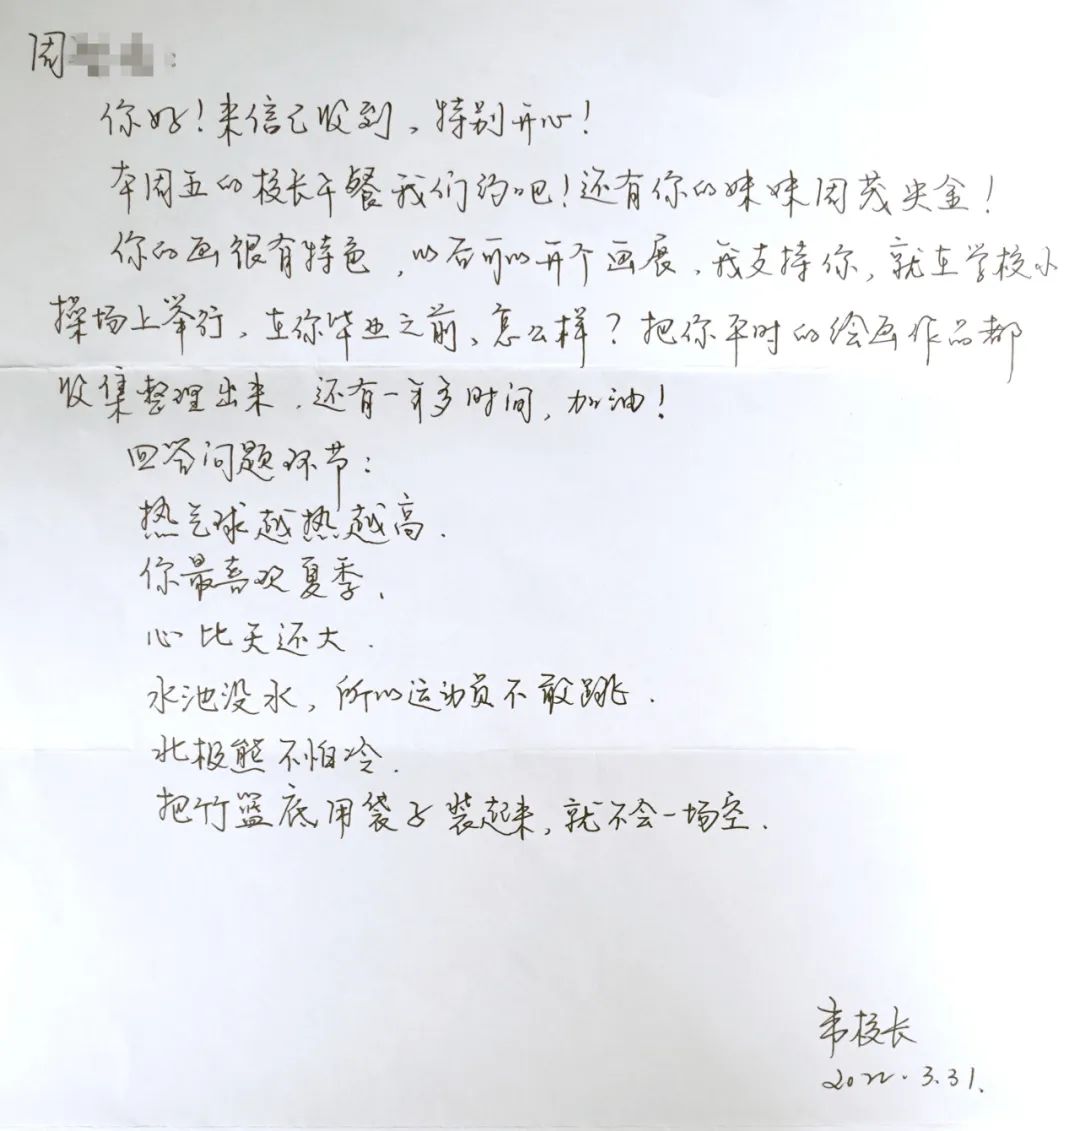 周
你好！来信已收到，特别开心！
本周五的校长午餐我们约吧！还有你的妹妹周茂央金！
你的画很有特色，以后可以开个画展，我支持你，就在学校小
操场上举行，在你毕业之前，怎么样？把你平时的绘画作品都
收集整理出来，还有一年多时间，加油！
回答问题环节：
热气球越热越高．
你最喜欢夏季．
心比天还大．
水池没水，所以运动员不敢跳．
北极熊不怕冷．
把竹篮底用袋子装起来，就不会一场空．
韦校长
2022.3.31.